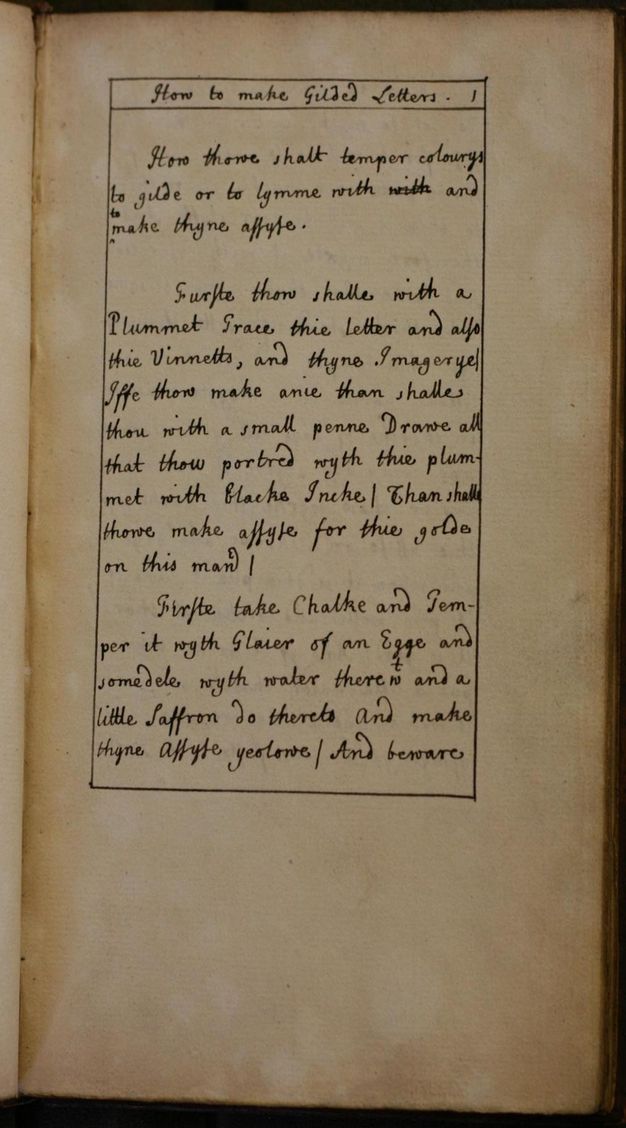 How to make Gilded Letters. 1
How thowe shalt temper colourys
to gilde or to lymme with with and
to
make thyne assyse.
Furste thow shalle with a
Plummet Trace thie letter and also
thie Vinnetts, and thyne Imagerye/
Iffe thow make anie than shalle
thou with a small penne Drawe all
that thow portred wyth thie plum-
met with blacke Incke / Than shalle
thowe make assyse for thie golde
on this man̄ /
Firste take Chalke and Tem-
per it wyth Glaier of an Egge and
somedele wyth water therewᵗ and a
little Saffron do thereto And make
thyne Assyse yeolowe / And beware